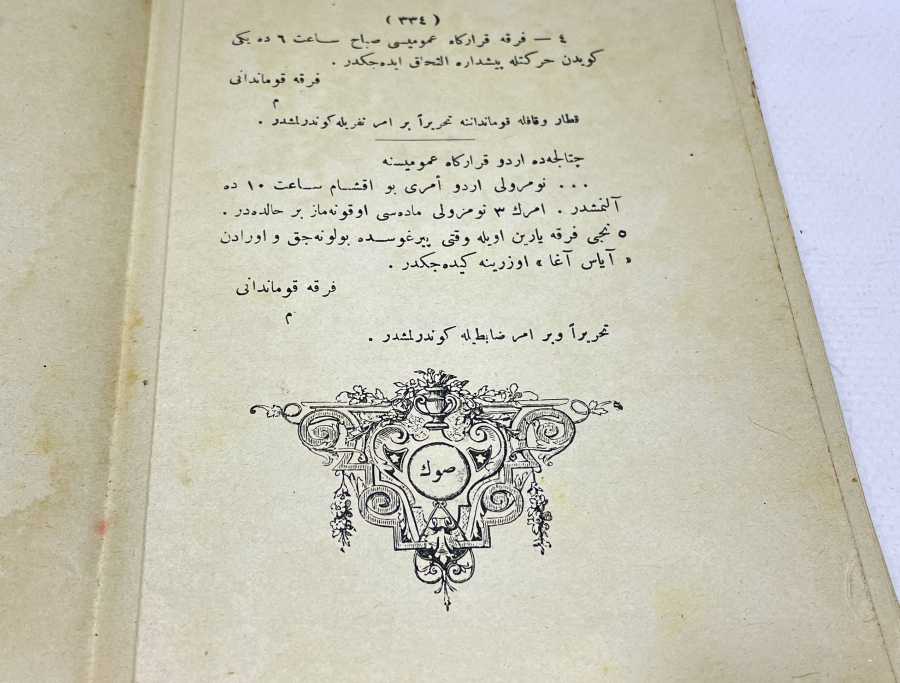 ( ٣٣٤ )
٤ — فرقه قرارگاه عموميسى صباح ساعت ٦ ده يكى
كويدن حركتله پيشداره التحاق ايده‌جكدر .
فرقه قوماندانى
م
قطار وقافله قوماندانه تحريراً بر امر نفريله كوندرلمشدر .
چتالجه‌ده اردو قرارگاه عموميسنه
... نومرولى اردو أمرى بو اقشام ساعت ١٠ ده
آلنمشدر . امرك ٣ نومرولى ماده‌سى اوقونه‌ماز بر حالده‌در .
٥ نجى فرقه يارين اويله وقتى پيرغوسده بولونه‌جق و اورادن
« آياس آغا » اوزرينه كيده‌جكدر .
فرقه قوماندانى
م
تحريراً وبر امر ضابطيله كوندرلمشدر .
صوك